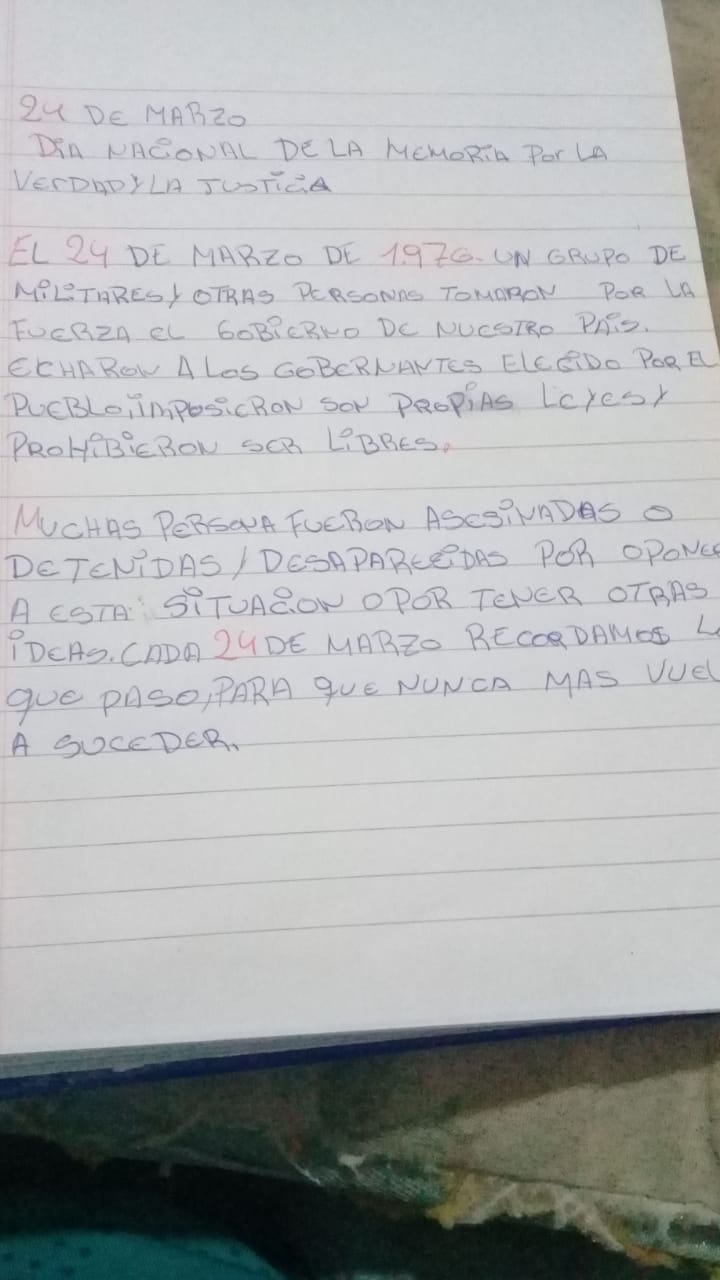 24 DE MARZO
DIA NACIONAL DE LA MEMORIA POR LA
VERDAD Y LA JUSTICIA
EL 24 DE MARZO DE 1.976. UN GRUPO DE
MILITARES Y OTRAS PERSONAS TOMARON POR LA
FUERZA EL GOBIERNO DE NUESTRO PAÍS.
ECHARON A LOS GOBERNANTES ELEGIDO POR EL
PUEBLO, IMPOSIERON SON PROPIAS LEYES Y
PROHIBIERON SER LIBRES.
MUCHAS PERSONA FUERON ASESINADAS O
DETENIDAS / DESAPARECIDAS POR OPONER
A ESTA SITUACION O POR TENER OTRAS
IDEAS. CADA 24 DE MARZO RECORDAMOS LO
QUE PASO, PARA QUE NUNCA MAS VUEL
A SUCEDER.